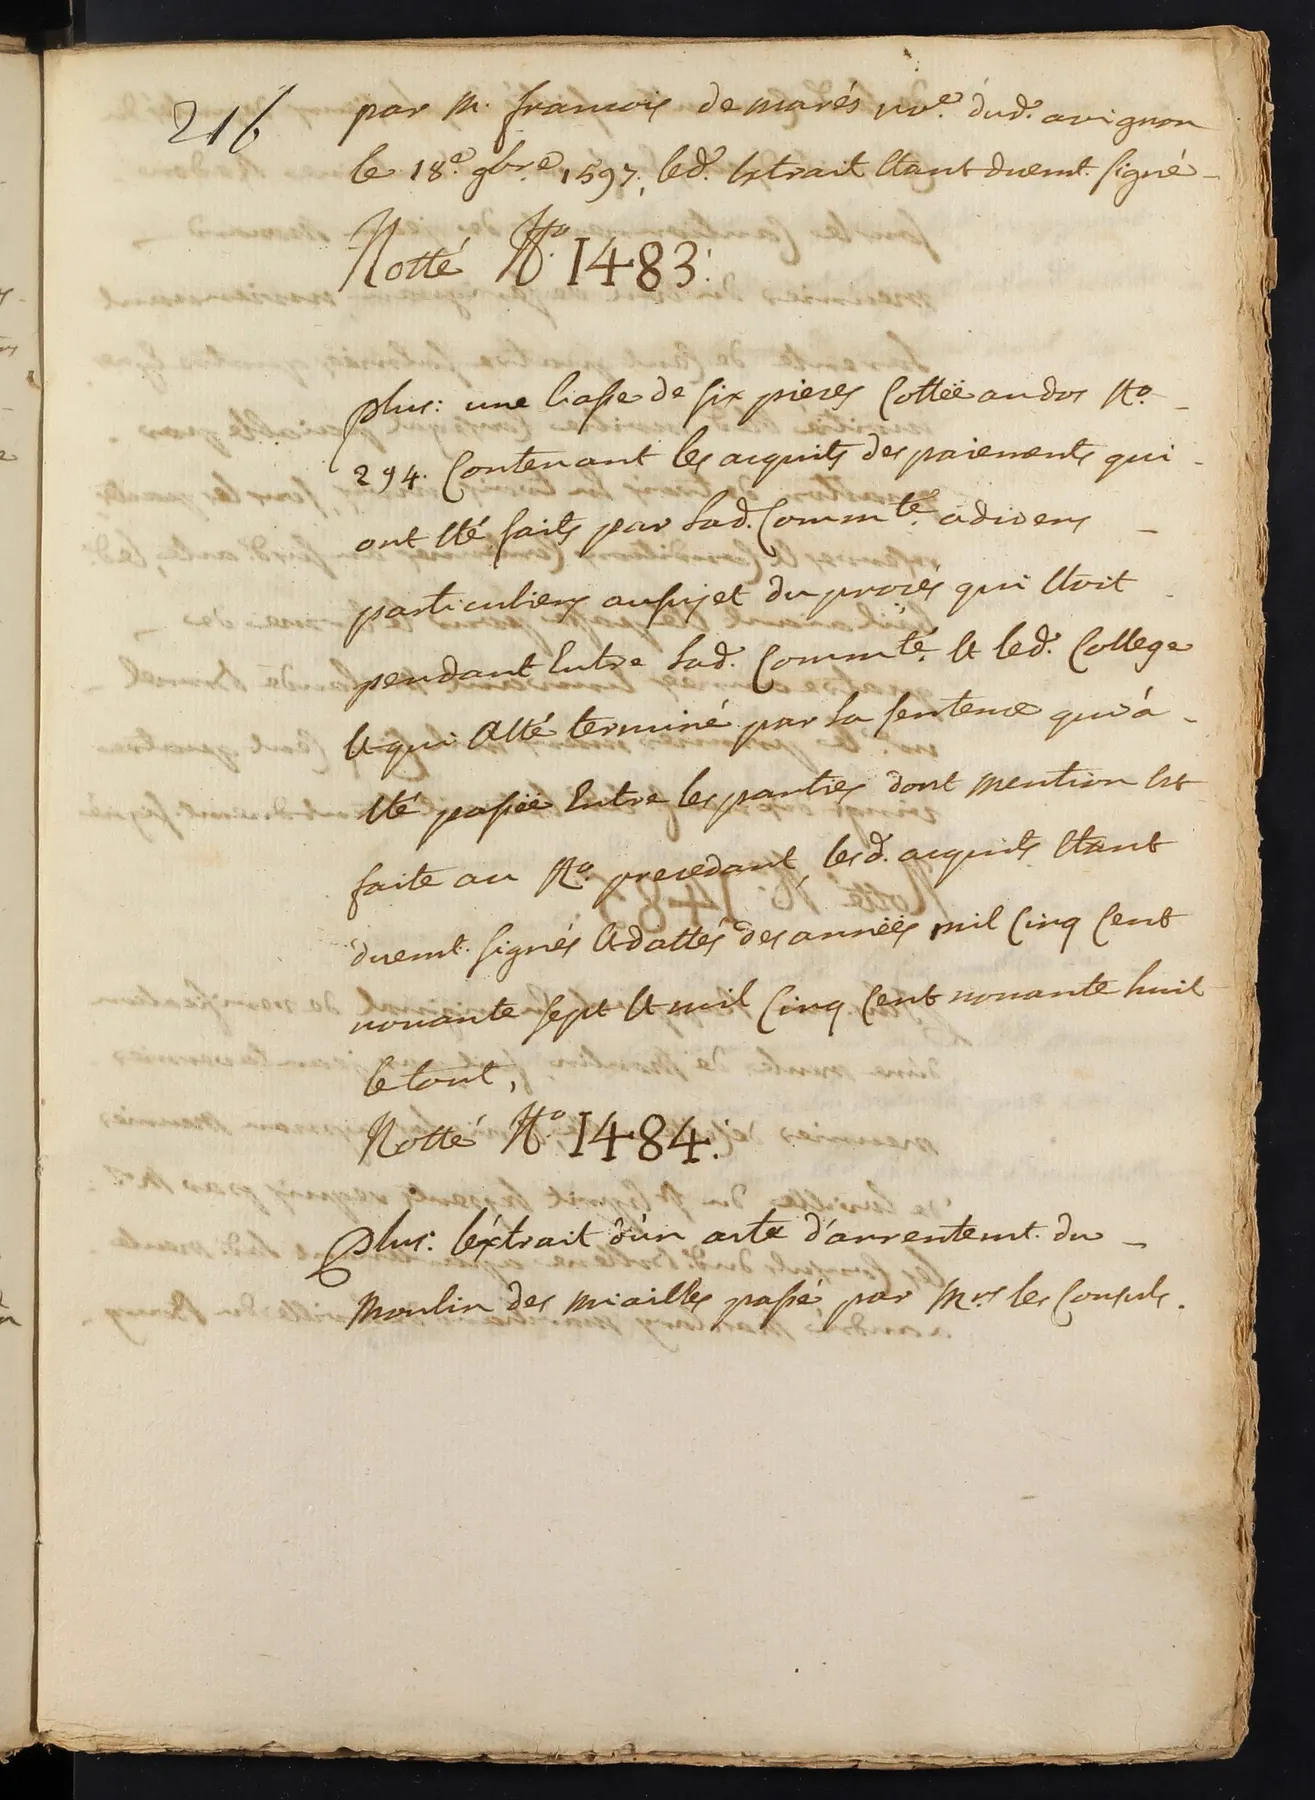 216
par m. francois de marés nore. dud. avignon
le 18e. 9bre. 1597, led. Extrait Etant duemt. signé
Notté No. 1483.
plus: une liasse de six pieces Cottéë au dos No.
294. Contenant les acquits des paiements qui
ont Eté faits par lad. Commté. a divers
particuliers au sujet du procés qui Etoit
pendant Entre lad. Commté. Et led. College
Et qui a Eté terminé par la sentence qui à
Eté passéë Entre les parties dont mention Est
faite au No. precedant, lesd. acquits Etant
duemt. signés Et dattés des annéës mil Cinq Cent
nonante sept Et mil Cinq Cent nonante huit
le tout,
Notté No. 1484.
plus: l'éxtrait d'ùn acte d'arrentemt. du
moulin des miailles passé par mrs les Consuls.